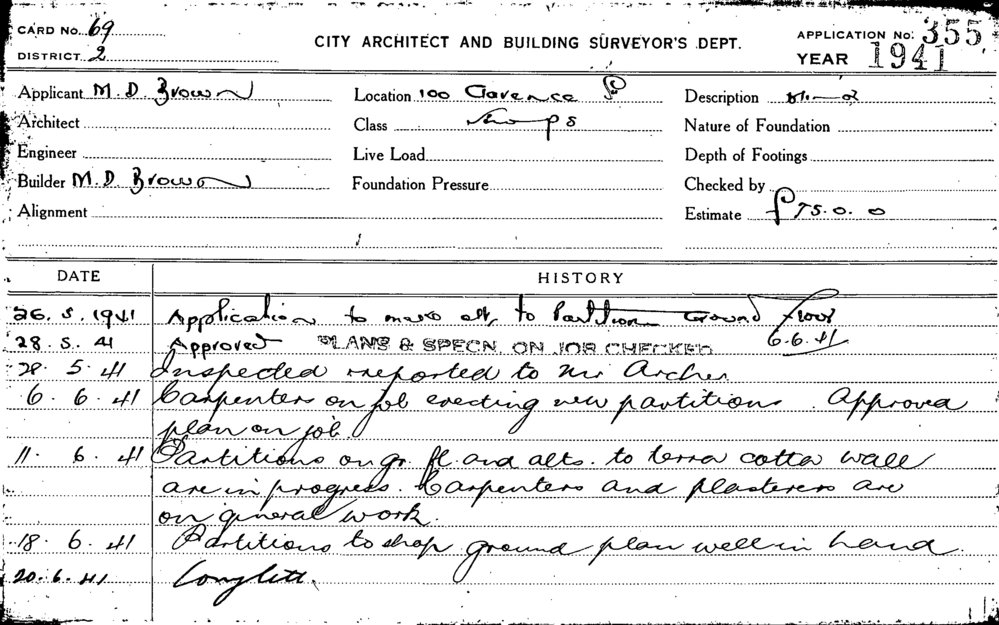 CARD No. 69
DISTRICT 2
CITY ARCHITECT AND BUILDING SURVEYOR'S DEPT.
APPLICATION No. 355
YEAR 1941
Applicant M. D. Brown
Location 100 Clarence St
Description
Architect
Class Shops
Nature of Foundation
Engineer
Live Load
Depth of Footings
Builder M. D. Brown
Foundation Pressure
Checked by
Alignment
Estimate £75.0.0
DATE HISTORY
26.5.1941 Application to make alt. to Partition Ground Floor
28.5.41 Approved PLANS & SPECN. ON JOB CHECKED 6.6.41
28.5.41 Inspected & reported to Mr Archer
6.6.41 Carpenters on job erecting new partitions. Approved
plan on job.
11.6.41 Partitions on gr. fl. and alts. to terra cotta wall
are in progress. Carpenters and plasterers are
on general work.
18.6.41 Partitions to shop ground plan well in hand.
20.6.41